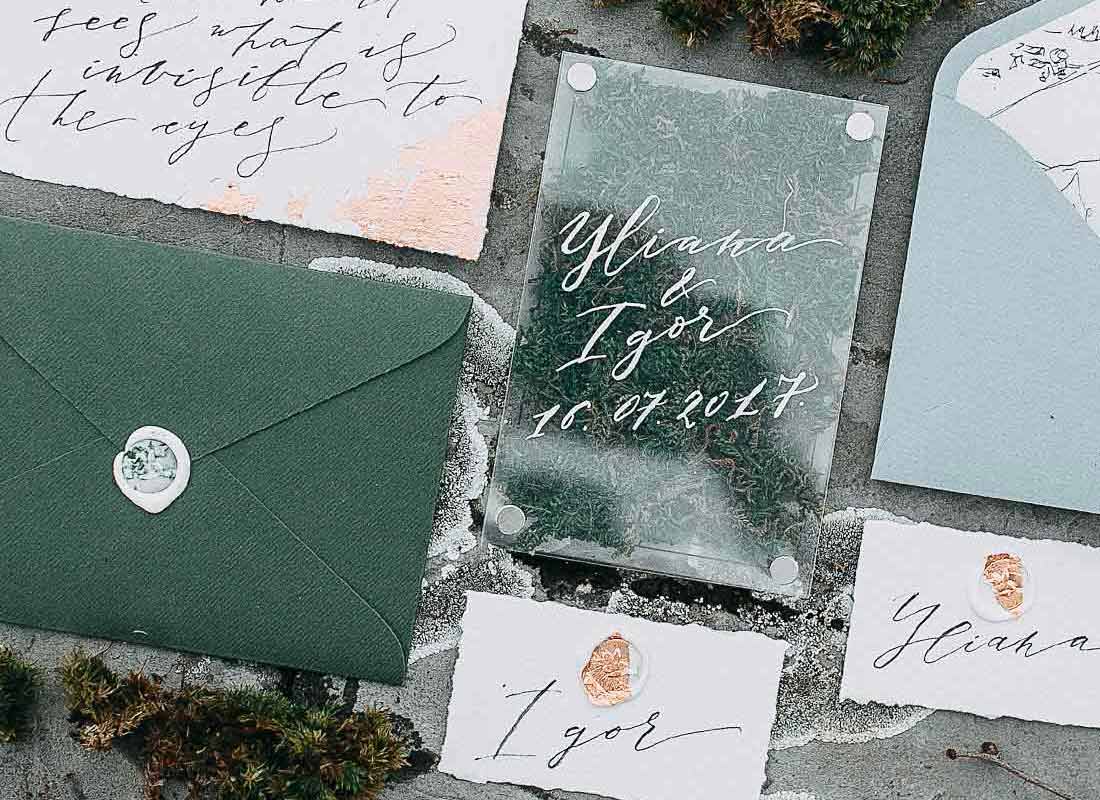 sees what is
invisible to
the eyes
Yliana
&
Igor
16.07.2017.
Igor
Yliana